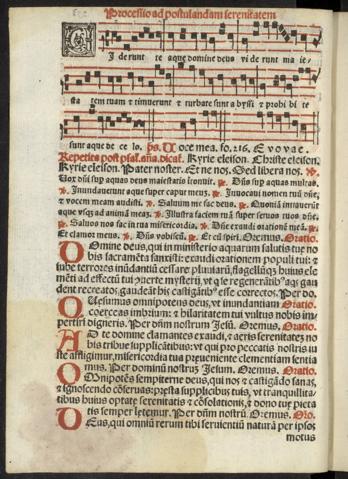 Processio ad postulandam serenitatem
Iderunt te aque domine deus viderunt maie/
sta tem tuam et timuerunt et turbate sunt abyssi et prohibite
sunt aque de celo. ps. Voce mea. fo. 216. Evovae.
Repetitis post psal. aña. dicat. Kyrie eleison. Christe eleison.
Kyrie eleison. Pater noster. Et ne nos. Sed libera nos.
Vox dñi sup aquas deus maiestatis intonuit. Dñs sup aquas multas.
Inundauerunt aque super caput meum. Inuocaui nomen tuũ dñe,
et vocem meam audisti. Saluum me fac deus. Quoniã intrauerũt
aque vsqz ad animã meaz. Illustra faciem tuã super seruos tuos dñe.
Saluos nos fac in tua misericordia. Dñe exaudi orationẽ meã.
Et clamor meus. Dñs vobiscũ. Et cũ spiri. Oremus. Oratio.
Domine deus, qui in ministerio aquarum salutis tue no
bis sacramẽta sanxisti: exaudi orationem populi tui: et
iube terrores inũdantiũ cessare pluuiarũ, flagellũqz huius ele
mẽti ad effectũ tui
dent recreatos, gaudeãt his castigatiõibus esse correctos. Per do.
Quesumus omnipotens deus, vt inundantiam Oratio.
coerceas imbrium: et hilaritatem tui vultus nobis im-
pertiri digneris. Per dñm nostrum Jesũ. Oremus. Oratio.
Ad te domine clamantes exaudi, et aeris serenitatez no
bis tribue supplicãtibus: vt qui pro peccatis nostris iu
ste affligimur, misericordia tua preueniente clementiam sentia
mus. Per dominũ nostruz Jesum. Oremus. Oratio.
Omnipotẽs sempiterne deus, qui nos et castigãdo sanas,
et ignoscendo cõseruas: presta supplicibus tuis, vt tranquillita-
tibus huius optate serenitatis et cõsolationis, et dono tue pieta
tis semper letemur. Per dñm nostrũ. Oremus. Oro.
Deus, qui omniũ rerum tibi seruientiũ naturã per ipsos
motus